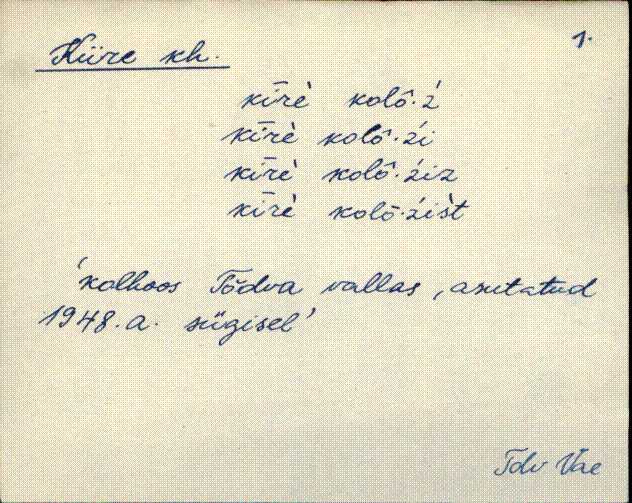 1.
Kiire kh.
kīrè kolô·ź
kīrè kolô·źi
kīrè kolô·źiz
kīrè kolō·źišt
'kolhoos Tõdva vallas, asutatud
1948.a. sügisel'
Tdv Vae